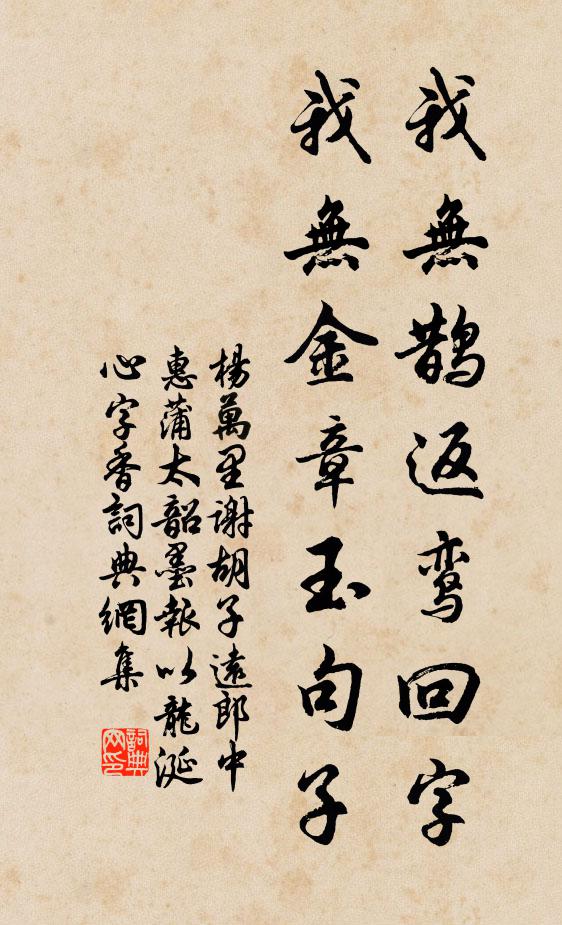 我無鵲返鸾回字
我無金章玉句子
楊萬里謝胡子遠郎中
惠蒲太韶墨報以龍涎
心字香詞典網集
詞典网印